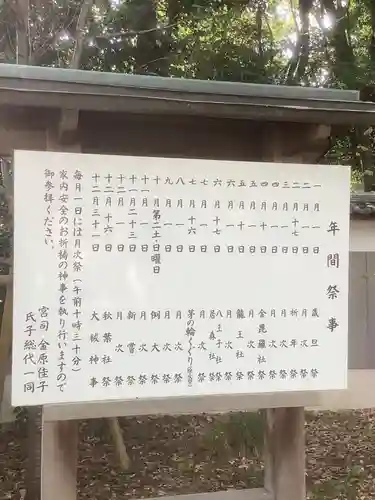 年間祭事
一月一日 歳旦祭
二月一日 月次祭
二月十七日 祈年祭
三月一日 月次祭
四月一日 月次祭
四月十日 金毘羅社祭
五月一日 月次祭
五月十日 龍王社祭
六月一日 月次祭
六月十七日 八王子社祭
居森社祭
七月一日 月次祭
七月十六日 茅の輪くぐり
八月一日 月次祭
九月一日 月次祭
十月第二土・日曜日 例大祭
十一月一日 月次祭
十一月二十三日 新嘗祭
十二月一日 月次祭
十二月十六日 秋葉社祭
十二月三十一日 大祓神事
毎月一日には月次祭（午前七時三十分）
家内安全のお祈祷の神事を執り行いますので
御参拝ください。
宮司 金原佳子
氏子総代一同